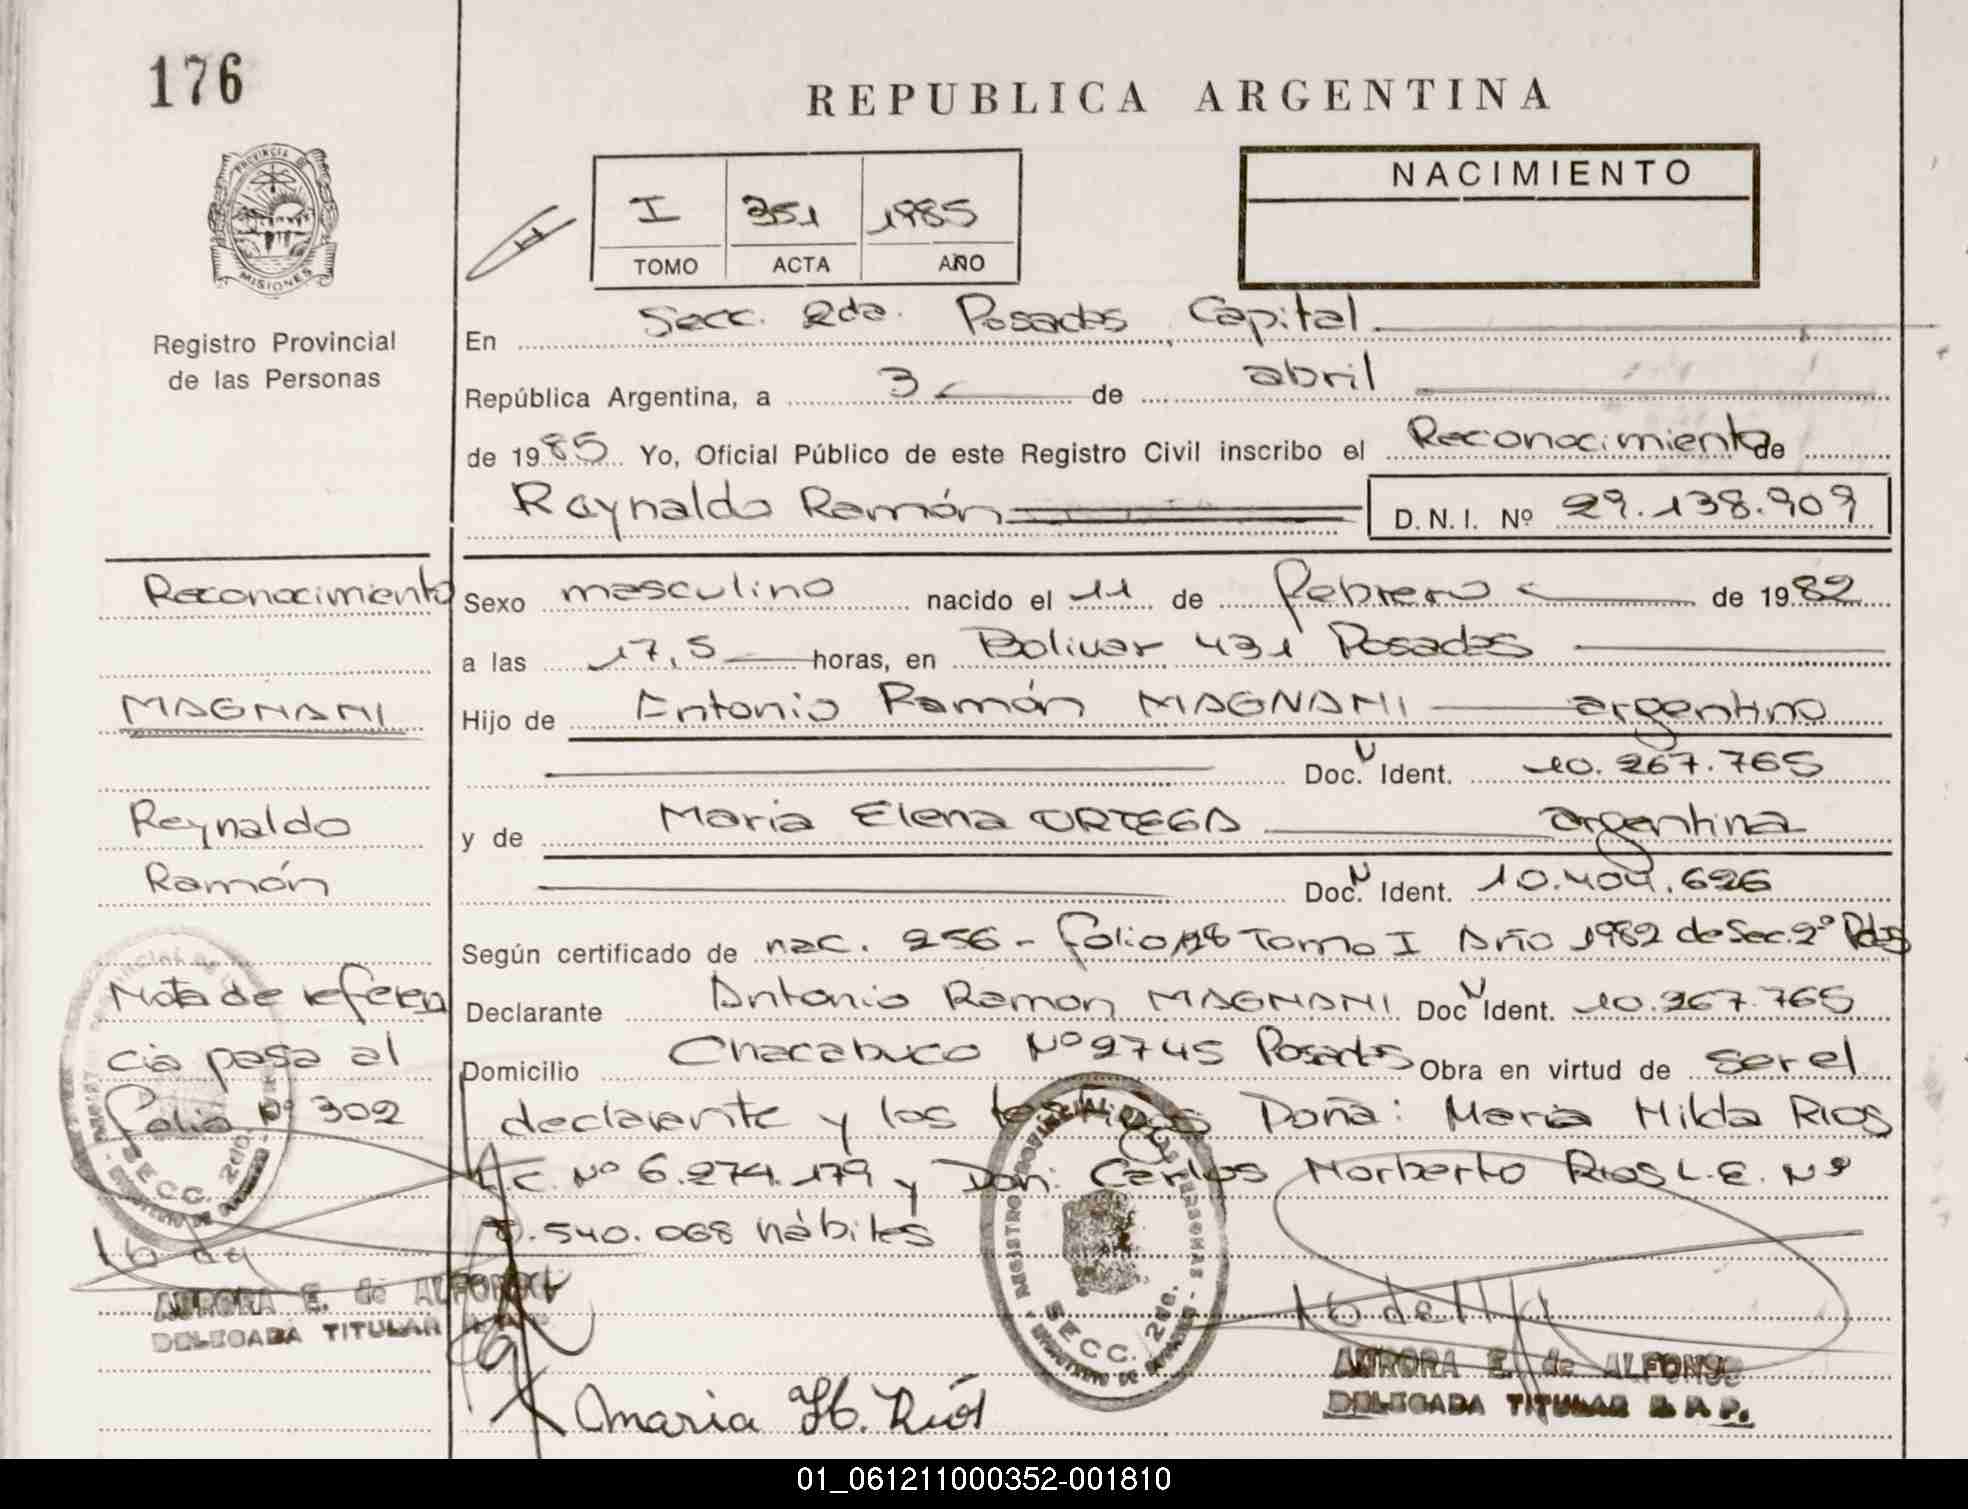 176
REPUBLICA ARGENTINA
PROVINCIA DE
MISIONES
Registro Provincial
de las Personas
I 351 1985
TOMO ACTA AÑO
NACIMIENTO
En Secc. 2da. Posadas Capital
República Argentina, a 3 de abril
de 1985 Yo, Oficial Público de este Registro Civil inscribo el Reconocimiento de
Reynaldo Ramón D.N.I. Nº 29.138.909
Reconocimiento
MAGNANI
Reynaldo
Ramón
Nota de referen
cia pasa al
folio Nº 302
AURORA E. de ALFONSO
DELEGADA TITULAR
Sexo masculino nacido el 11 de febrero de 1982
a las 17,5 horas, en Bolivar 431 Posadas
Hijo de Antonio Ramón MAGNANI argentino
Doc. N Ident. 10.267.765
y de Maria Elena ORTEGA argentina
Doc. N Ident. 10.404.626
Según certificado de nac. 256 - folio 128 Tomo I Año 1982 de Sec. 2º Pdas
Declarante Antonio Ramon MAGNANI Doc N Ident. 10.267.765
Domicilio Chacabuco Nº 2745 Posadas Obra en virtud de ser el
declarante y los testigos Doña: Maria Hilda Rios
L.C. Nº 6.274.179 y Don: Carlos Norberto Rios L.E. Nº
.540.068 hábiles
REGISTRO PROVINCIAL DE LAS PERSONAS
SECC. 2da.
AURORA E. de ALFONSO
DELEGADA TITULAR R.P.P.
Maria H. Ríos
01_061211000352-001810